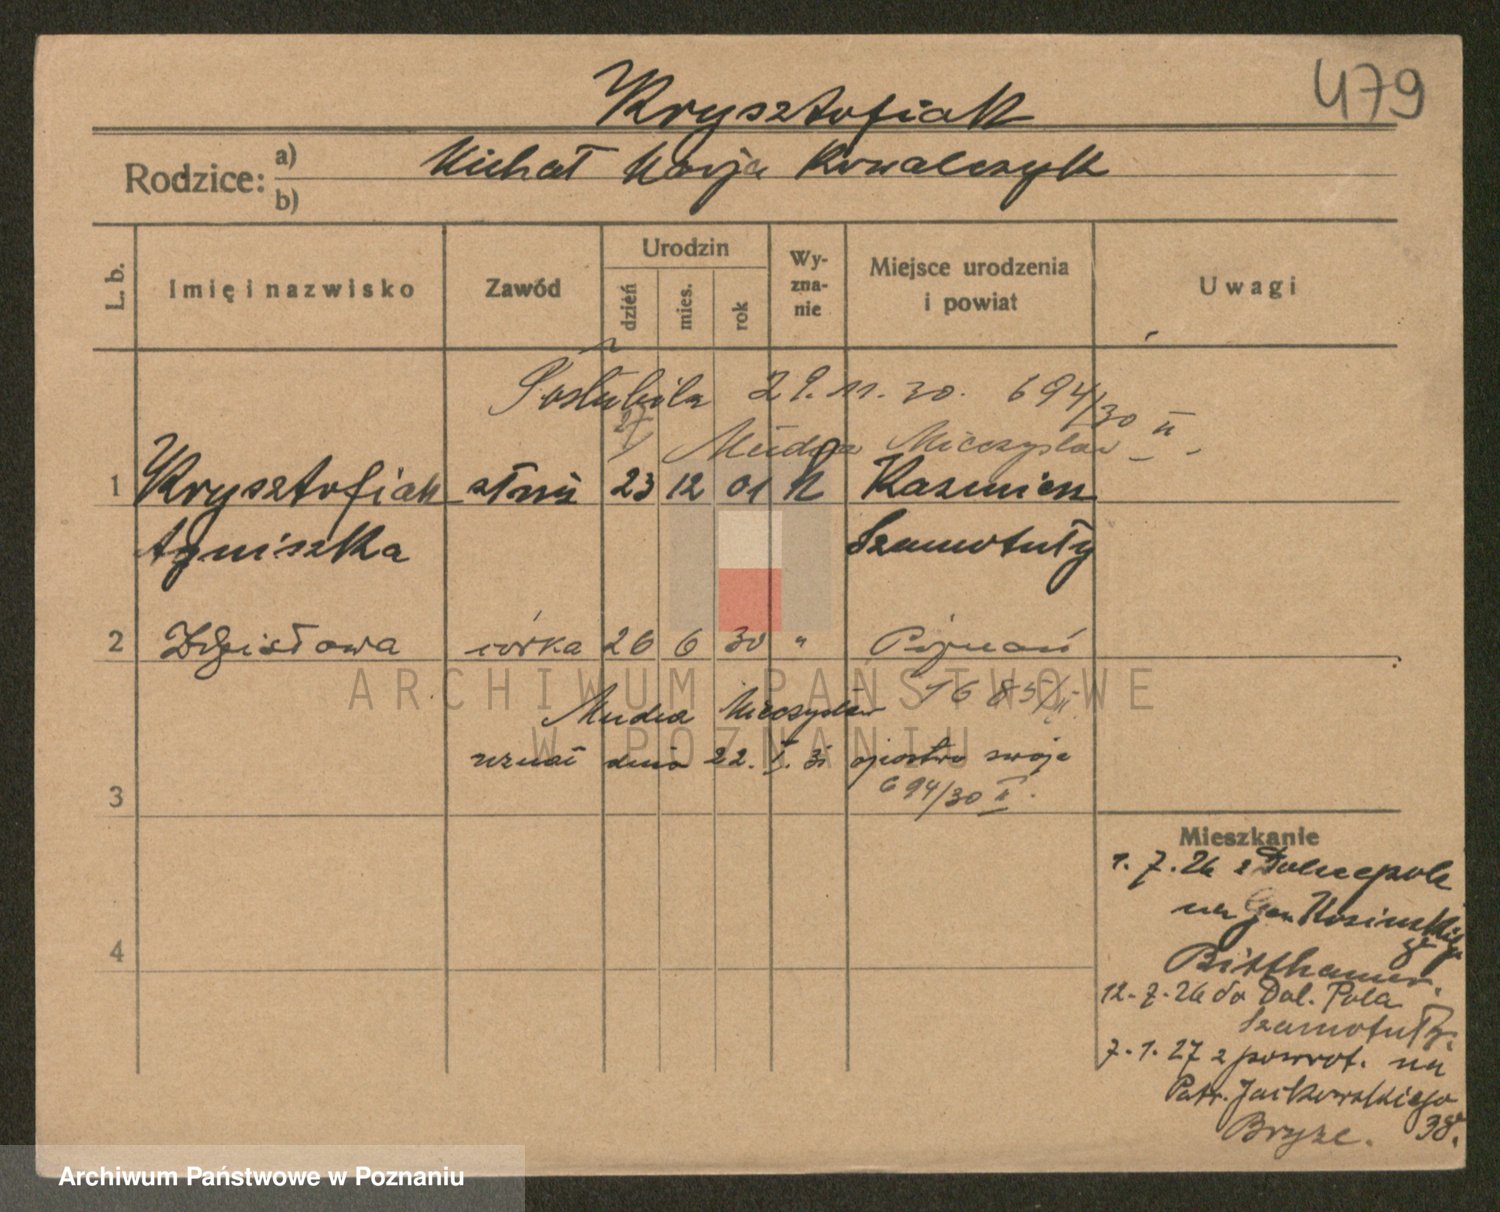 479
Krysztofiak
Rodzice: a) b)
Michał Marja Kowalczyk
L. b.
Imię i nazwisko
Zawód
Urodzin
dzień
mies.
rok
Wy-
zna-
nie
Miejsce urodzenia
i powiat
Uwagi
Poślubiła 29.11.30. 694/30 II
Mudra Mieczysław
1 Krysztofiak służ 23 12 01 k Kazmierz
Agniszka Szamotuły
2 Zdzisława córka 26 6 30 " Poznań
Mudra Mieczysław
uznał dnia 22. I. 31 ojcostwo swoje
694/30 II.
3
4
Mieszkanie
1.7.26 z Dolnepole
na Gen Kosińskiego
Bitthauer.
12.7.26 do Dol. Pola
Szamotuły.
7.1.27 z powrot. na
Patr. Jackowskiego
38.
Bryze.
ARCHIWUM PAŃSTWOWE
W POZNANIU
Archiwum Państwowe w Poznaniu